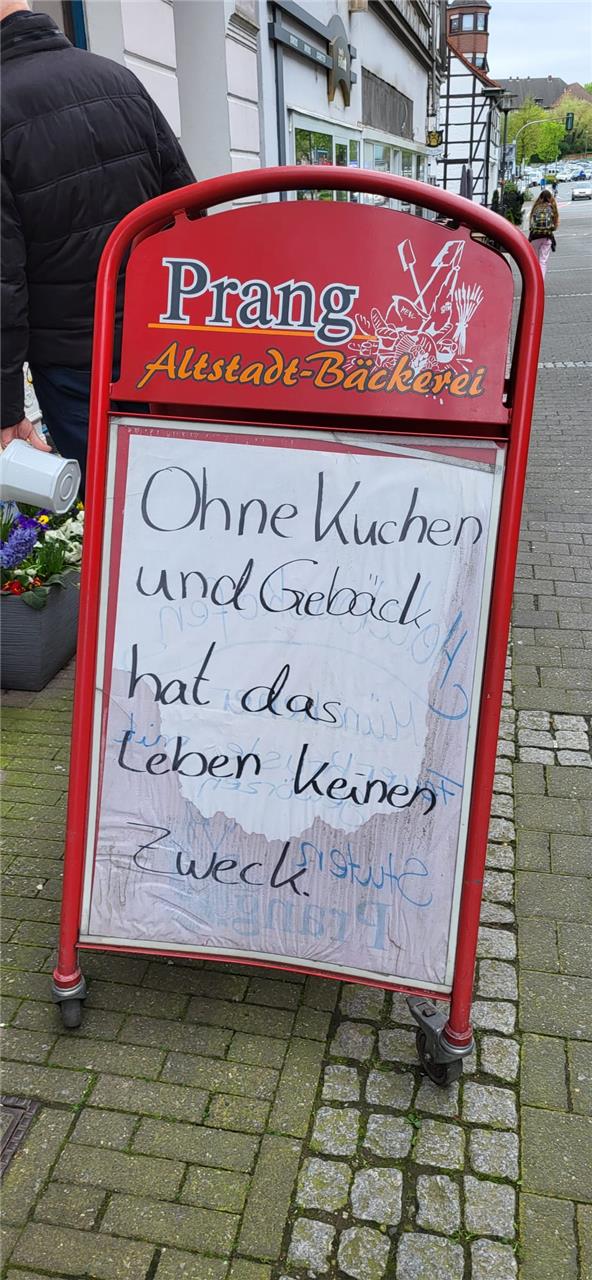 Prang
Altstadt-Bäckerei
Ohne Kuchen
und Gebäck
hat das
Leben keinen
Zweck.
Stuten
Prang